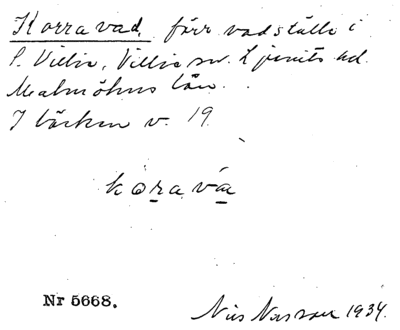 Korra vad, förr vadställe i
S. Villie, Villie sn. Ljunits hd.
Malmöhus län.
I bäcken v. 19.
kora vá
Nr 5668.
Nils 1934.